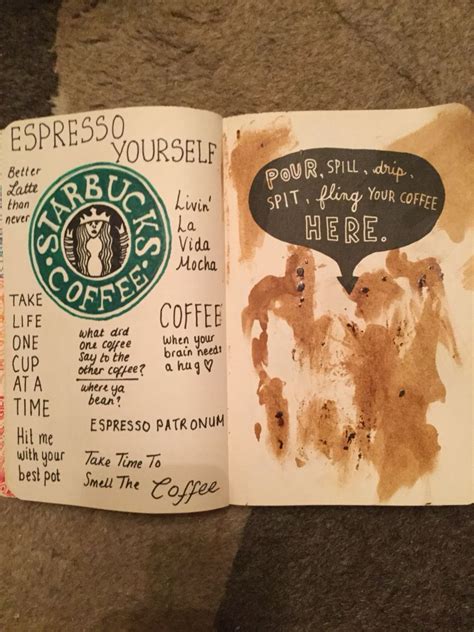 ESPRESSO
YOURSELF
Better
Latte
than
never
STARBUCKS
COFFEE
Livin'
La
Vida
Mocha
TAKE
LIFE
ONE
CUP
AT A
TIME
what did
one coffee
say to the
other coffee?
where ya
bean?
COFFEE
when your
brain needs
a hug♡
ESPRESSO PATRONUM
Hit me
with your
best pot
Take Time To
Smell The Coffee
POUR, SPILL, drip,
SPIT, fling YOUR COFFEE
HERE.